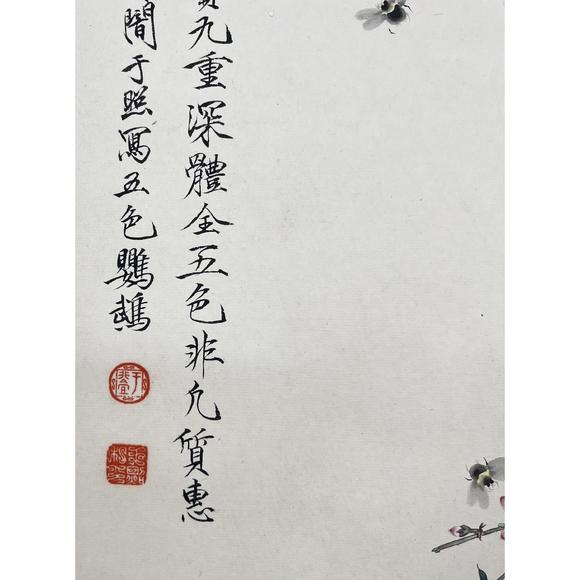 九重深體全五色非凡質惠
閒于照寫五色鸚鵡